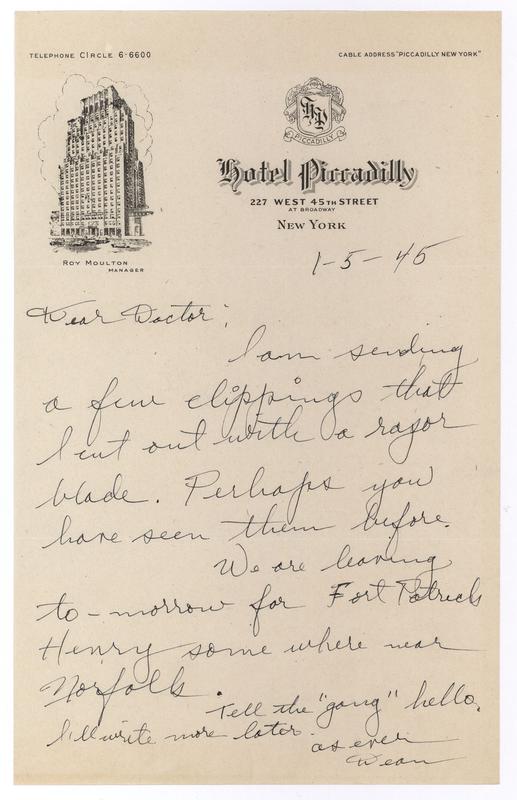 TELEPHONE CIRCLE 6-6600
CABLE ADDRESS "PICCADILLY NEW YORK"
HP
PICCADILLY
Hotel Piccadilly
227 WEST 45TH STREET
AT BROADWAY
NEW YORK
ROY MOULTON
MANAGER
1-5-45
Dear Doctor;
I am sending
a few clippings that
I cut out with a razor
blade. Perhaps you
have seen them before.
We are leaving
to-morrow for Fort Patrick
Henry some where near
Norfolk.
Tell the "gang" hello.
I'll write more later.
as ever
Dean